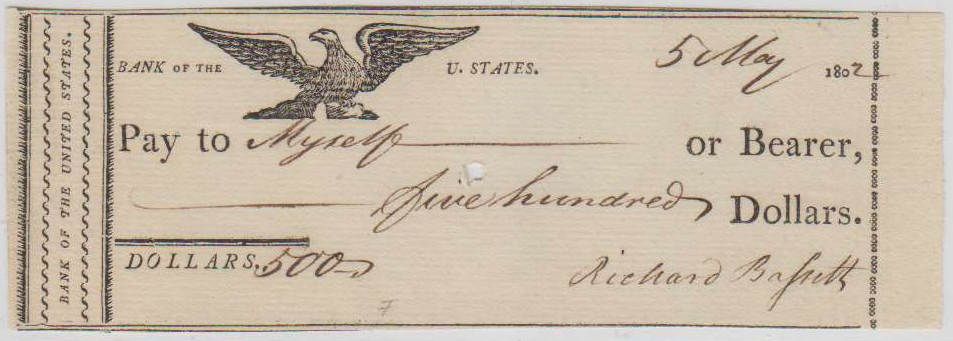 BANK OF THE UNITED STATES.
BANK OF THE U. STATES.
5 May 1802
Pay to Myself or Bearer,
five hundred Dollars.
DOLLARS, 500
Richard Bassett
7